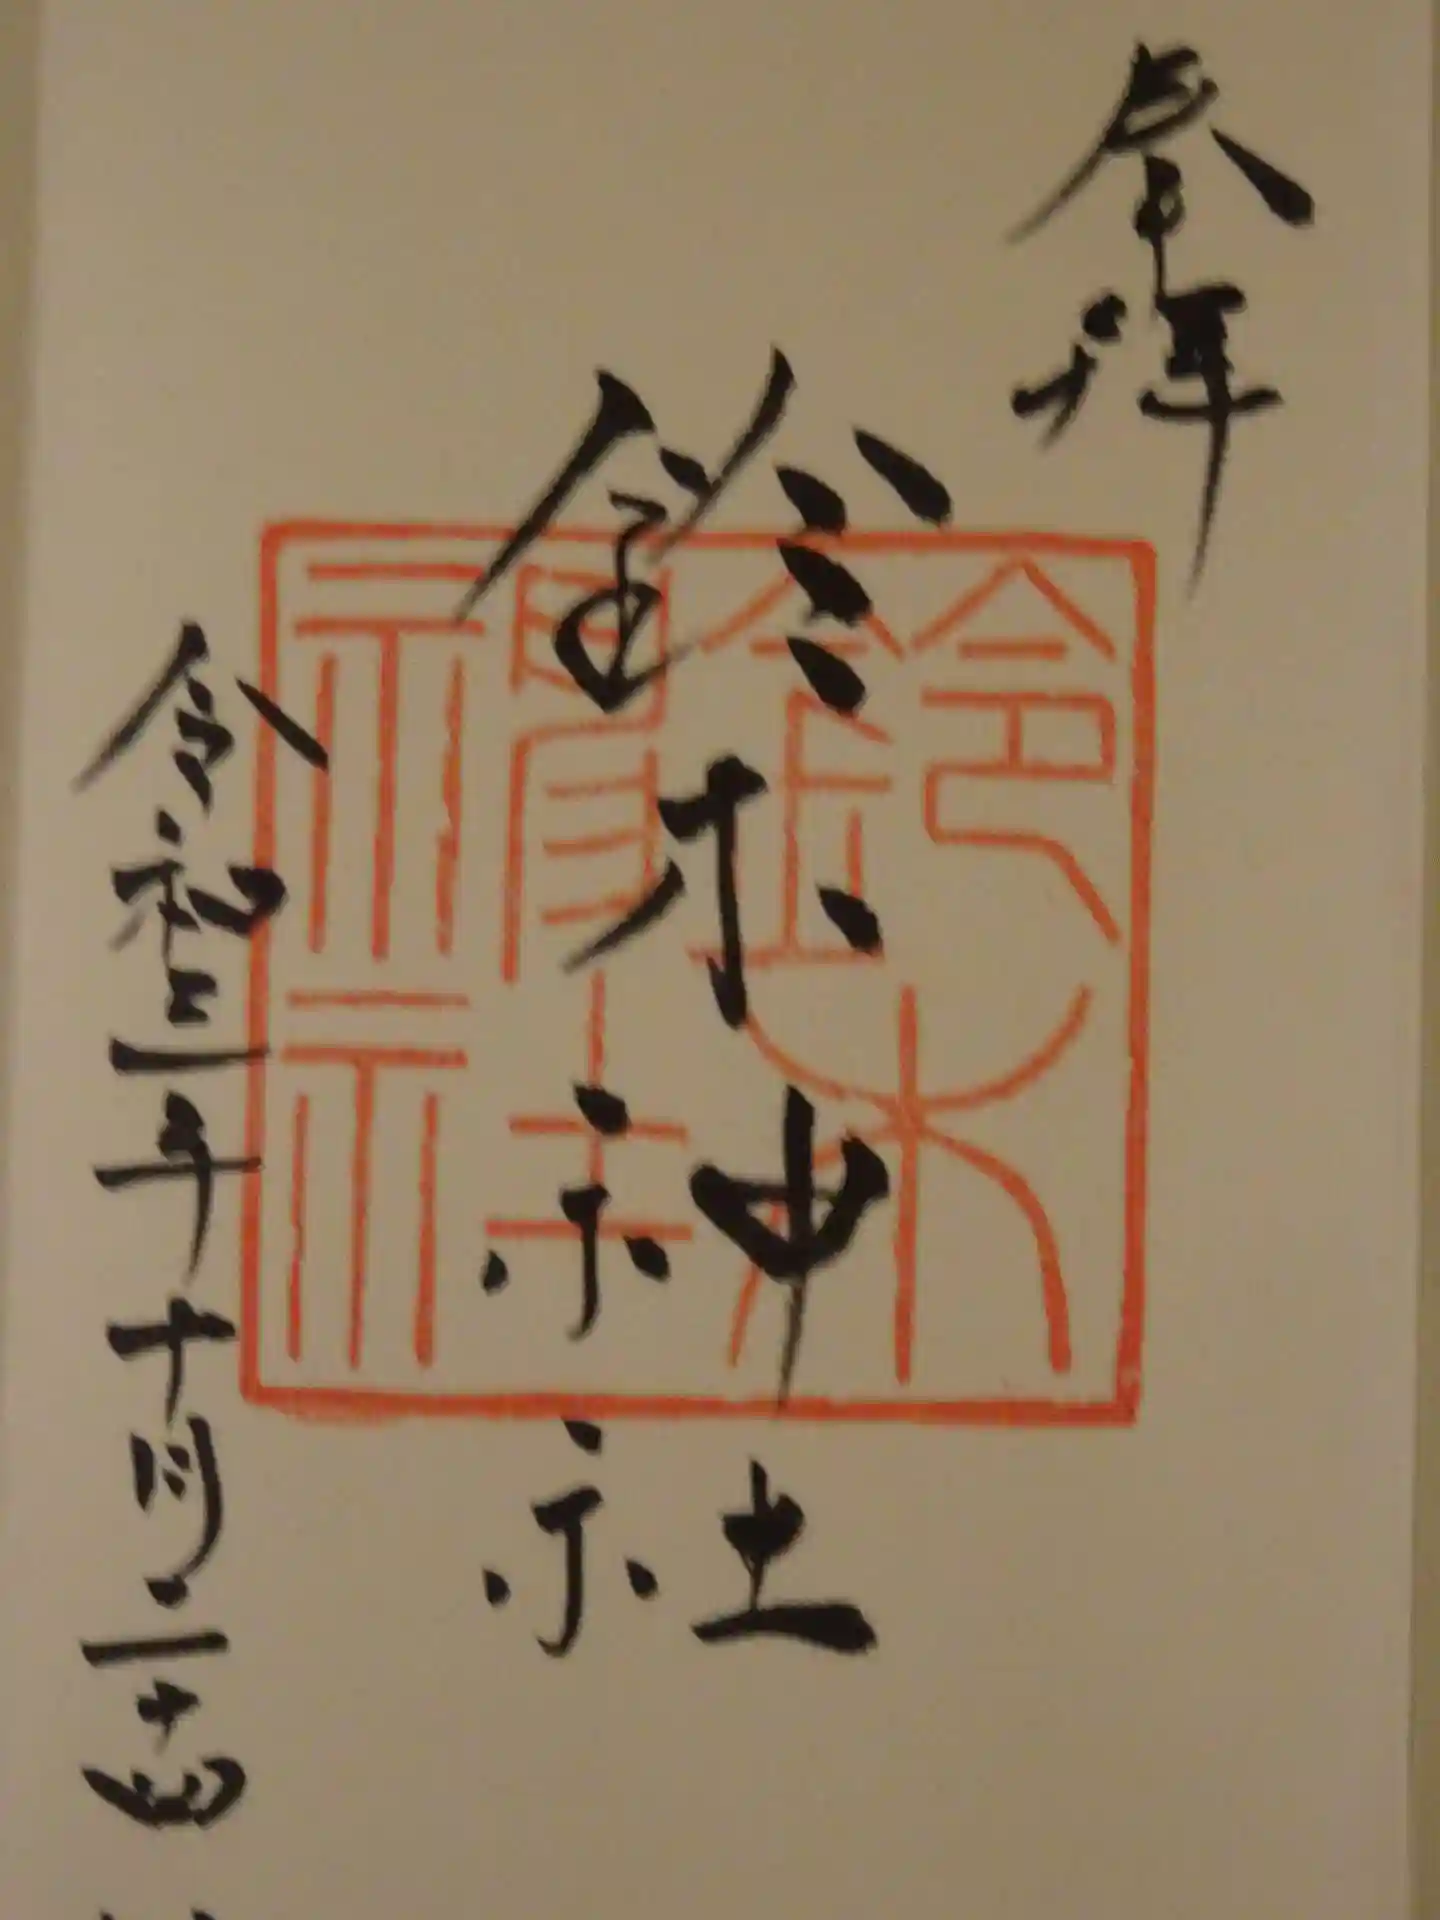 奉拝
鈴木神社
鈴木
神社
令和三年十月二十四